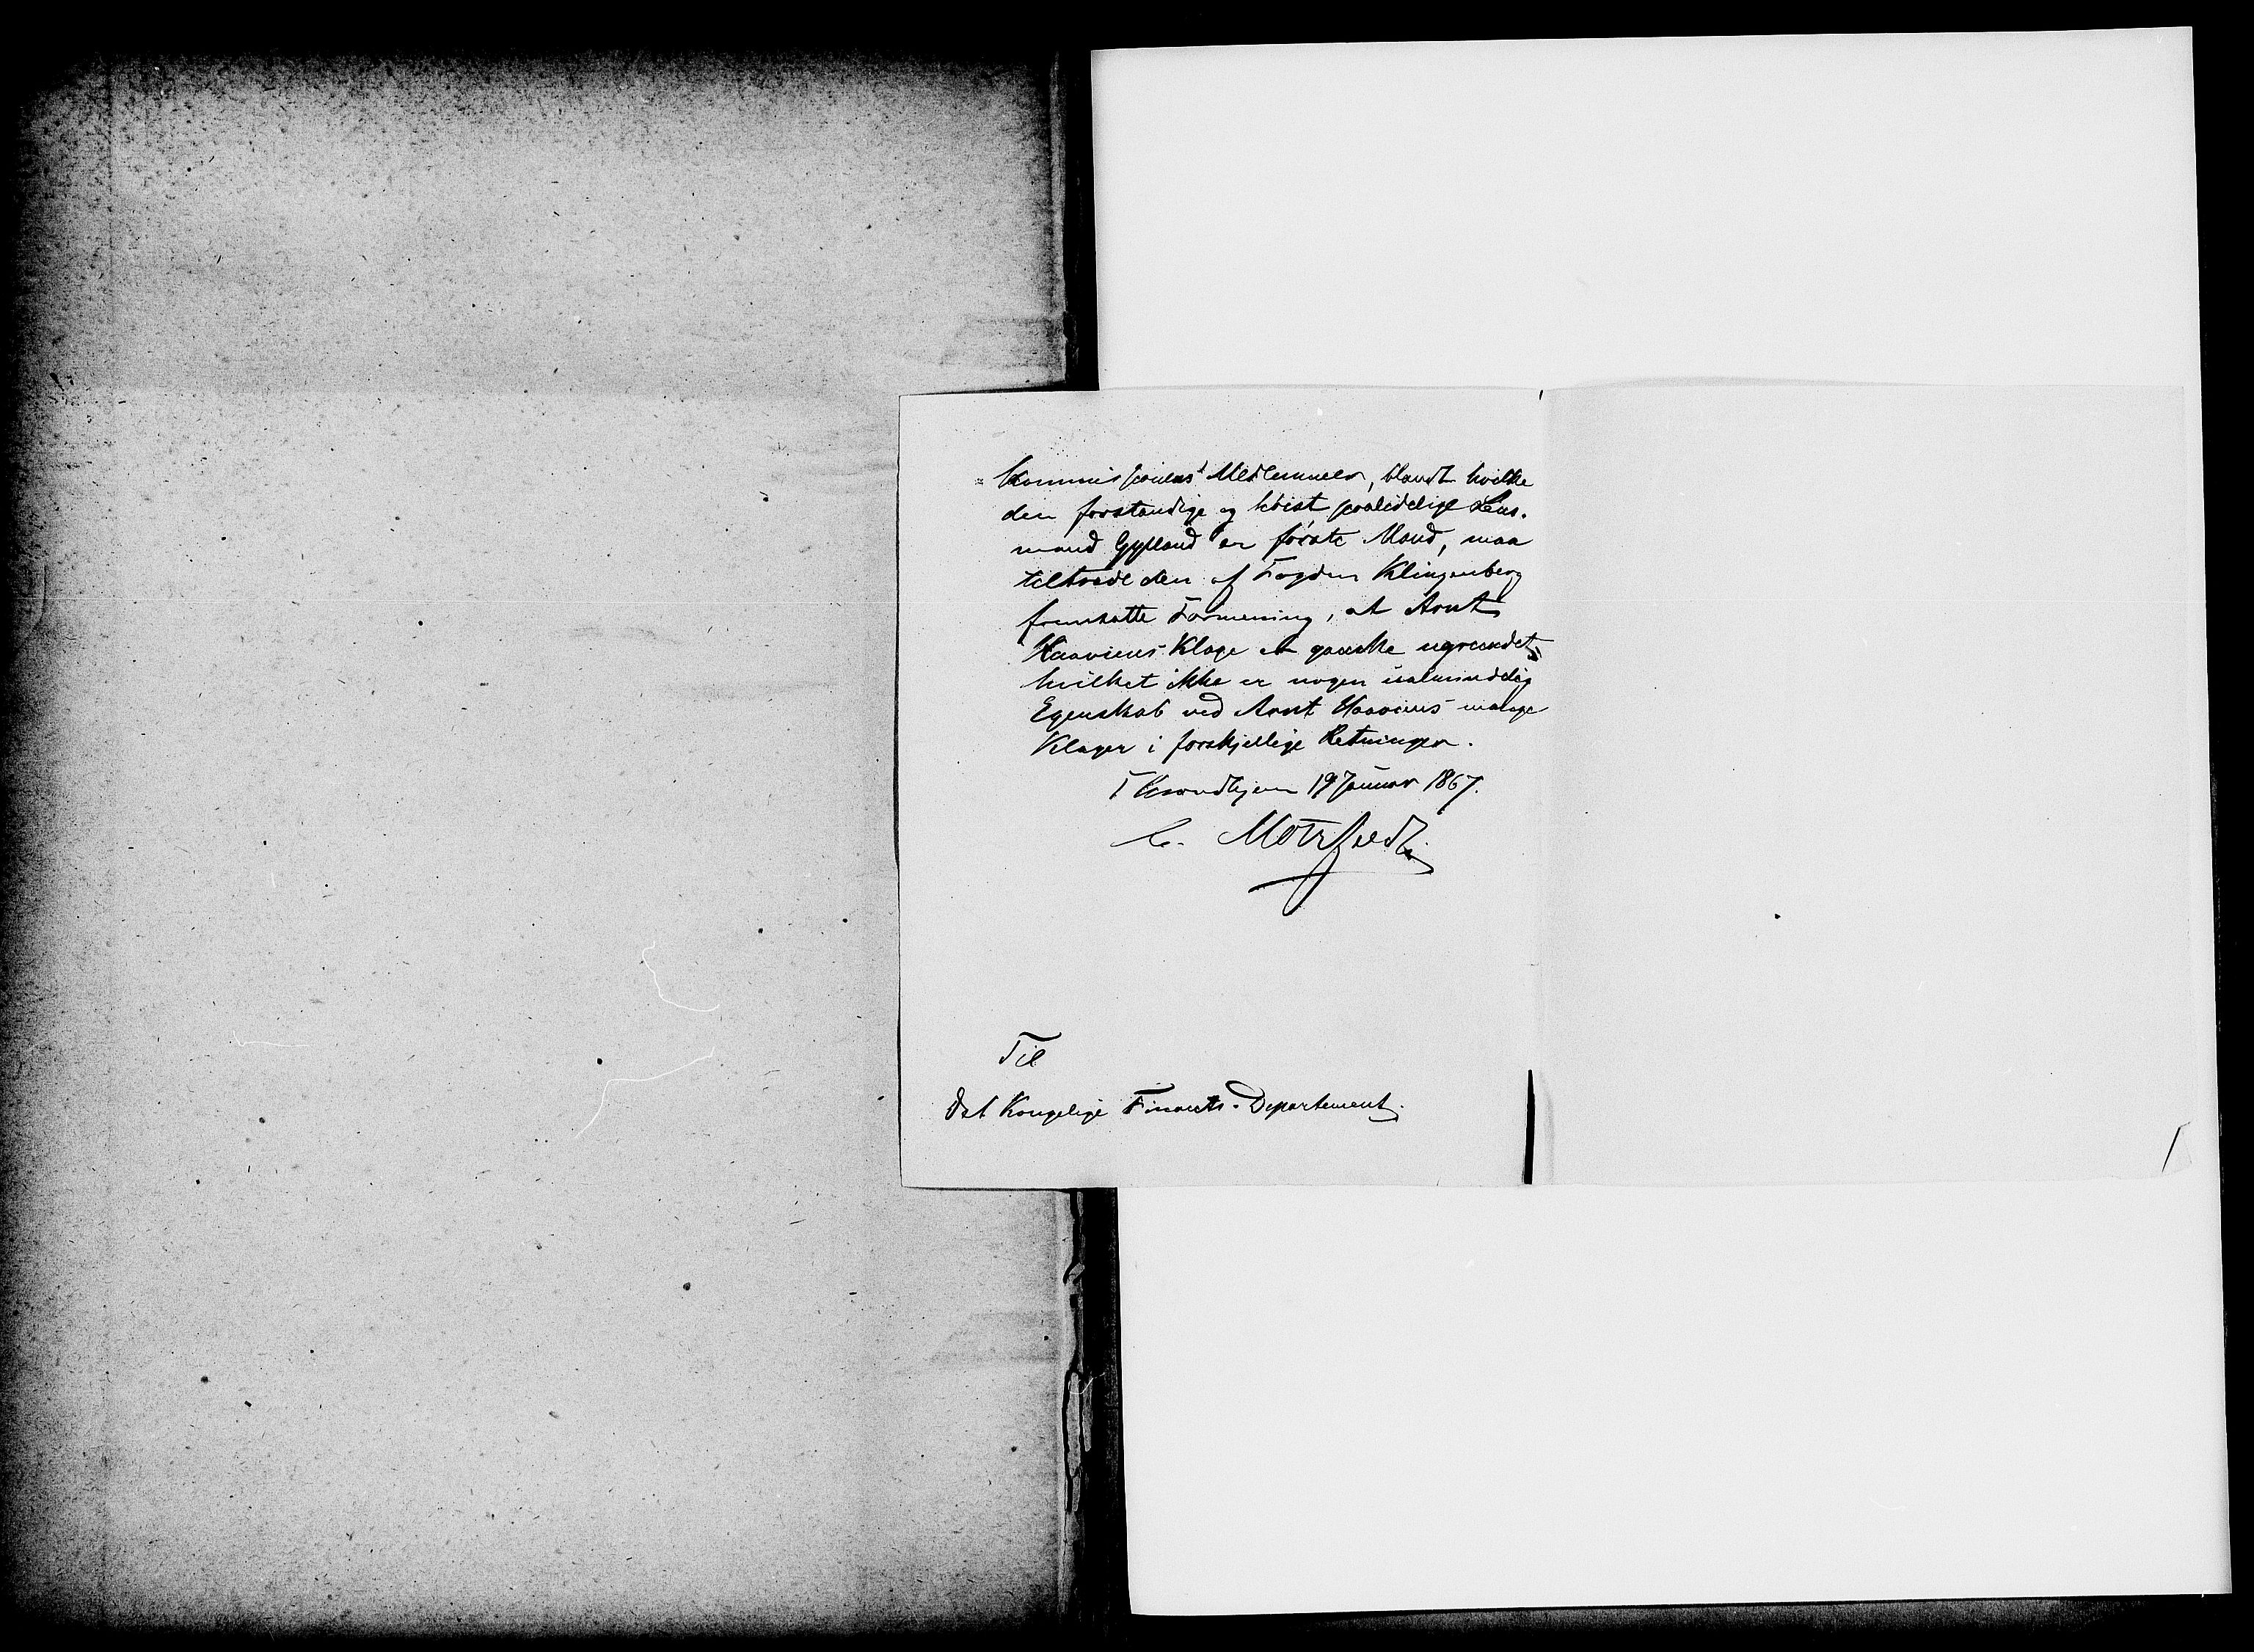 Kommissionens Medlemmer, blandt hvilke
den forstandige og høist paalidelige Lens-
mand Gylland er første Mand, maa
tiltræde den af Fogden Klingenberg
fremsatte Formening, at Arnt
Haavens Klage er ganske ugrundet,
hvilket ikke er nogen ualmindelig
Egenskab ved Arnt Haavens mange
Klager i forskjellige Retninger.
Throndhjem 19 Januar 1867.
C. Motzfeldt
Til
Det Kongelige Finants-Departement.